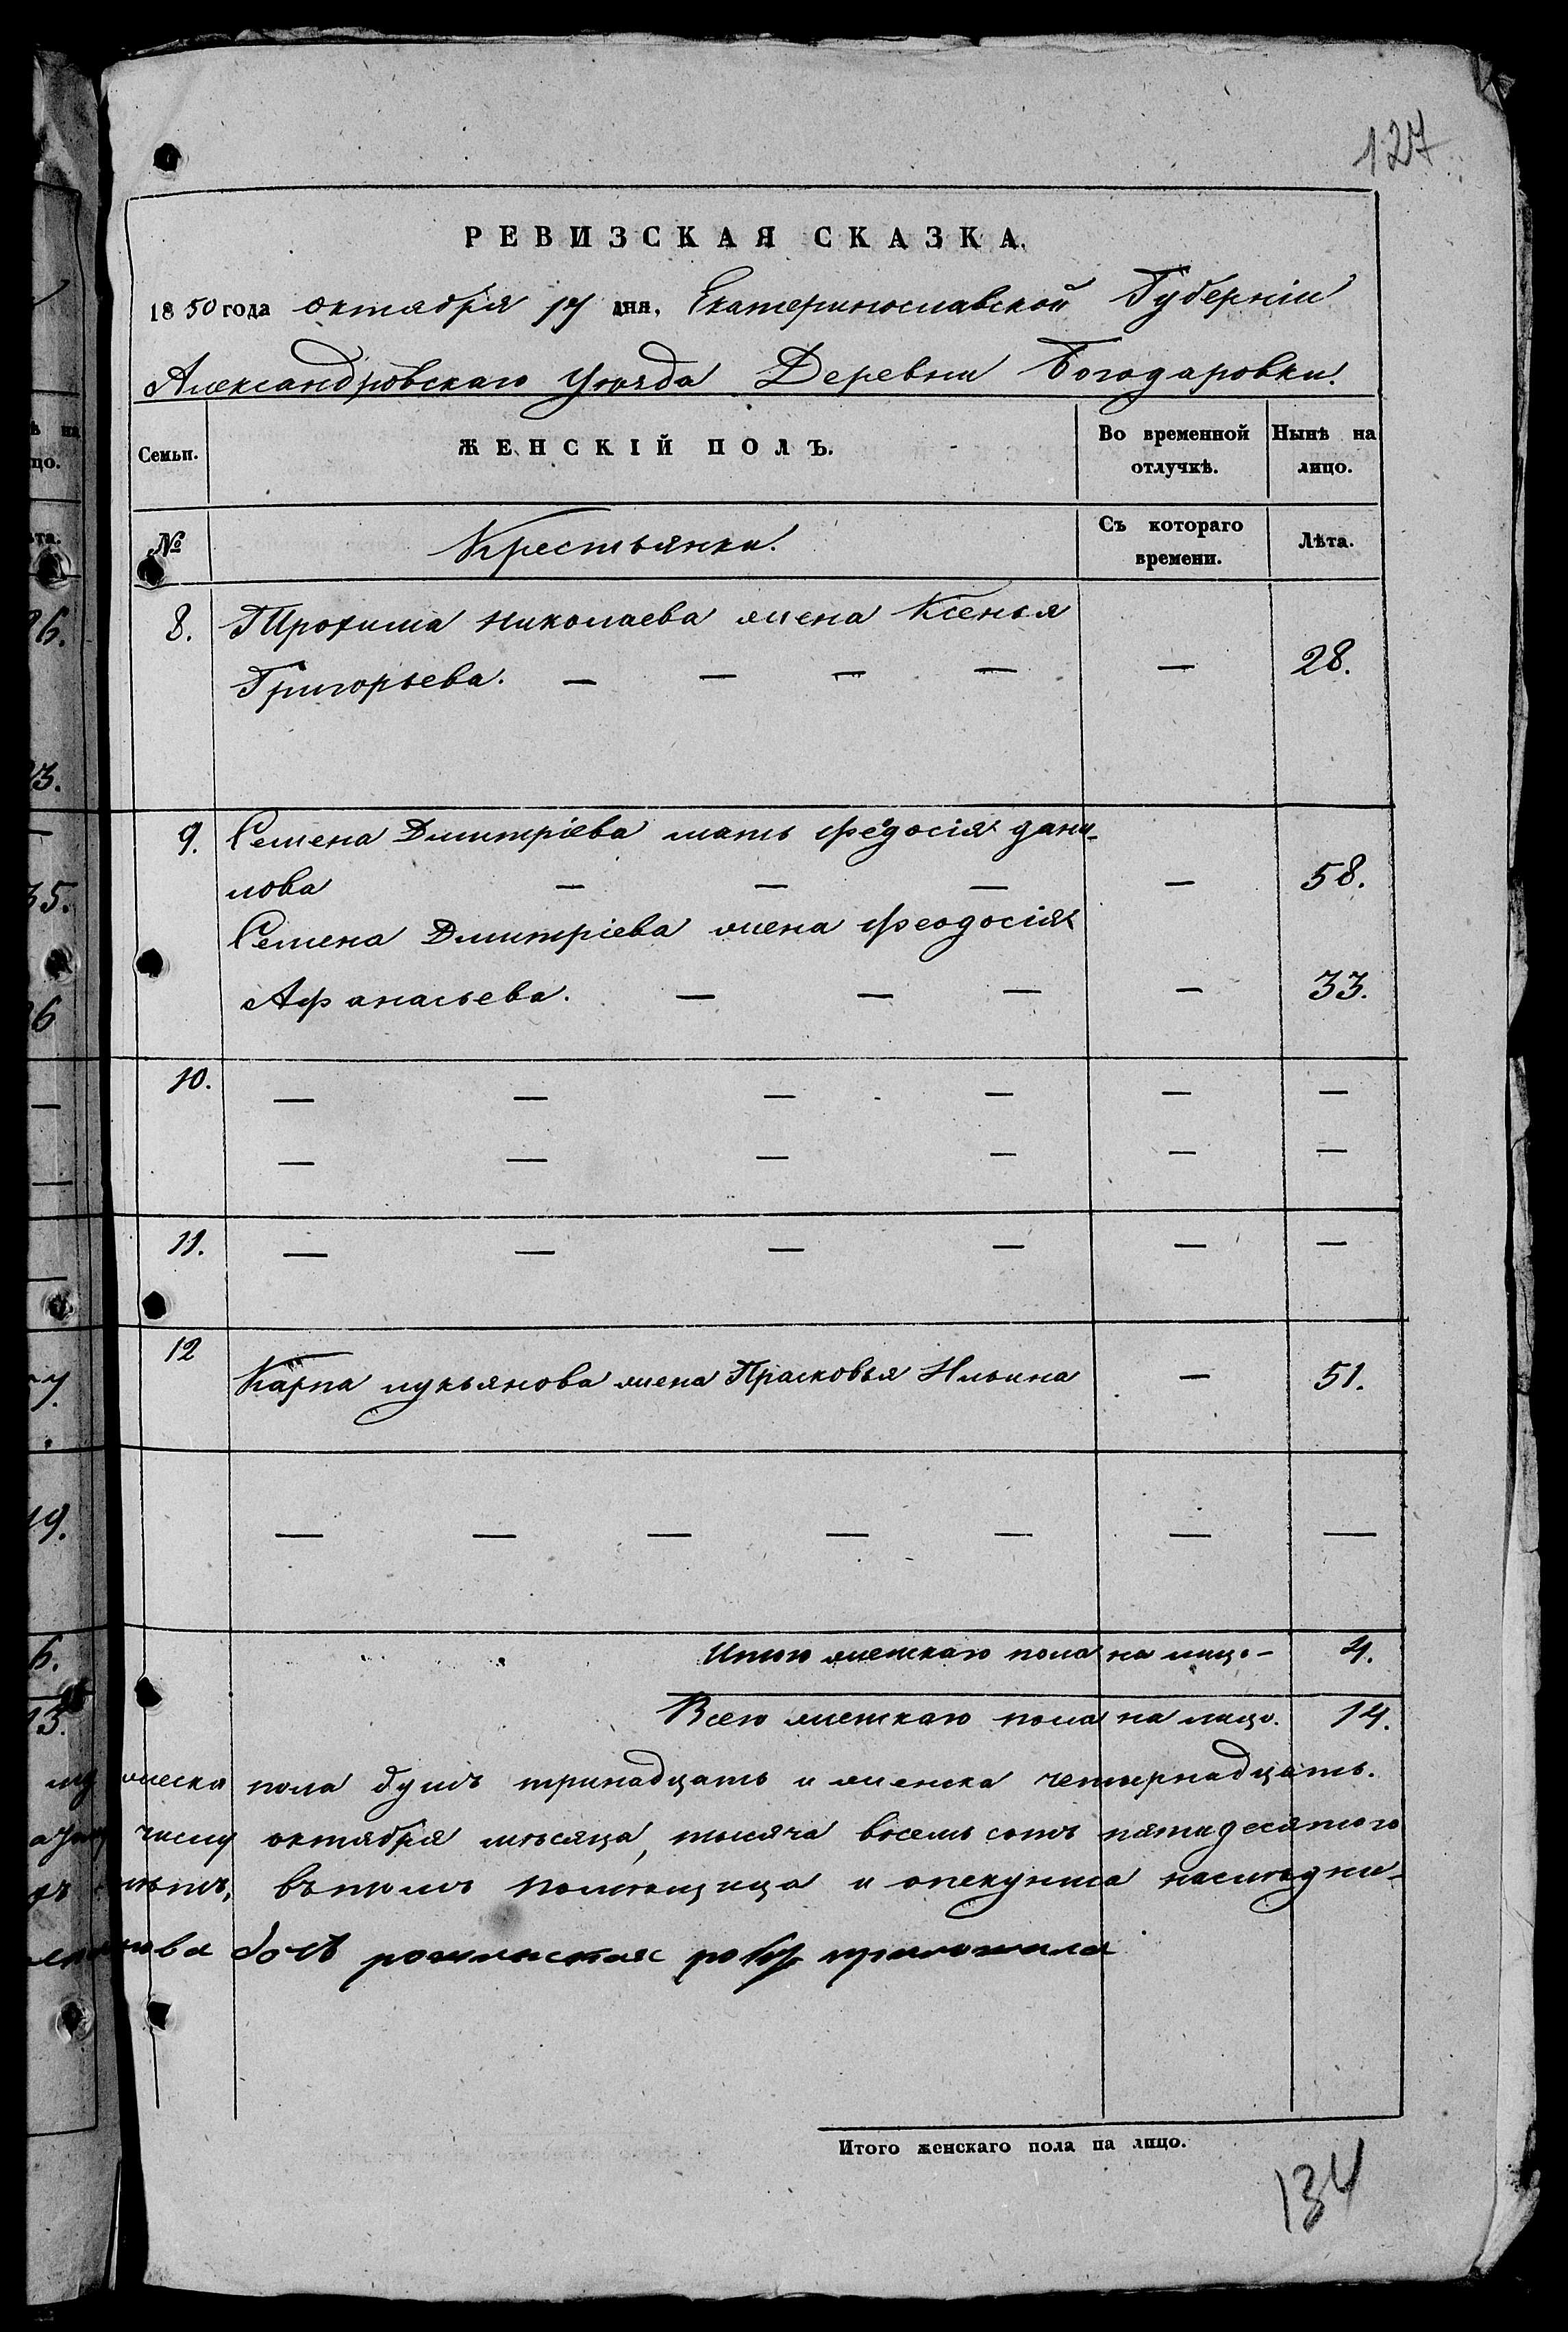 127
РЕВИЗСКАЯ СКАЗКА.
1850 года октября 17 дня, Екатеринославской Губерніи
Александровскаго уѣзда Деревни Богодаровки.
Семьи. ЖЕНСКІЙ ПОЛЪ. Во временной отлучкѣ. Нынѣ на лицо.
№ Крестьянки. Съ котораго времени. Лѣта.
8. Трофима Николаева жена Ксенья
Григорьева. — — — — — 28.
9. Семена Дмитріева мать Федосія Дани-
лова — — — — 58.
Семена Дмитріева жена Феодосія
Афанасьева. — — — — 33.
10. — — — — — —
— — — — — —
11. — — — — — —
12 Карпа Лукьянова жена Прасковья Ильина — 51.
— — — — — — —
Итого женскаго пола на лицо — 4.
Всего женскаго пола на лицо. 14.
мужеска пола душъ тринадцать и женска четырнадцать.
числу октября мѣсяца, тысяча восемь сотъ пятидесятого
въ томъ помѣщица и опекунша наслѣдни-
руку приложила
Итого женскаго пола на лицо.
134